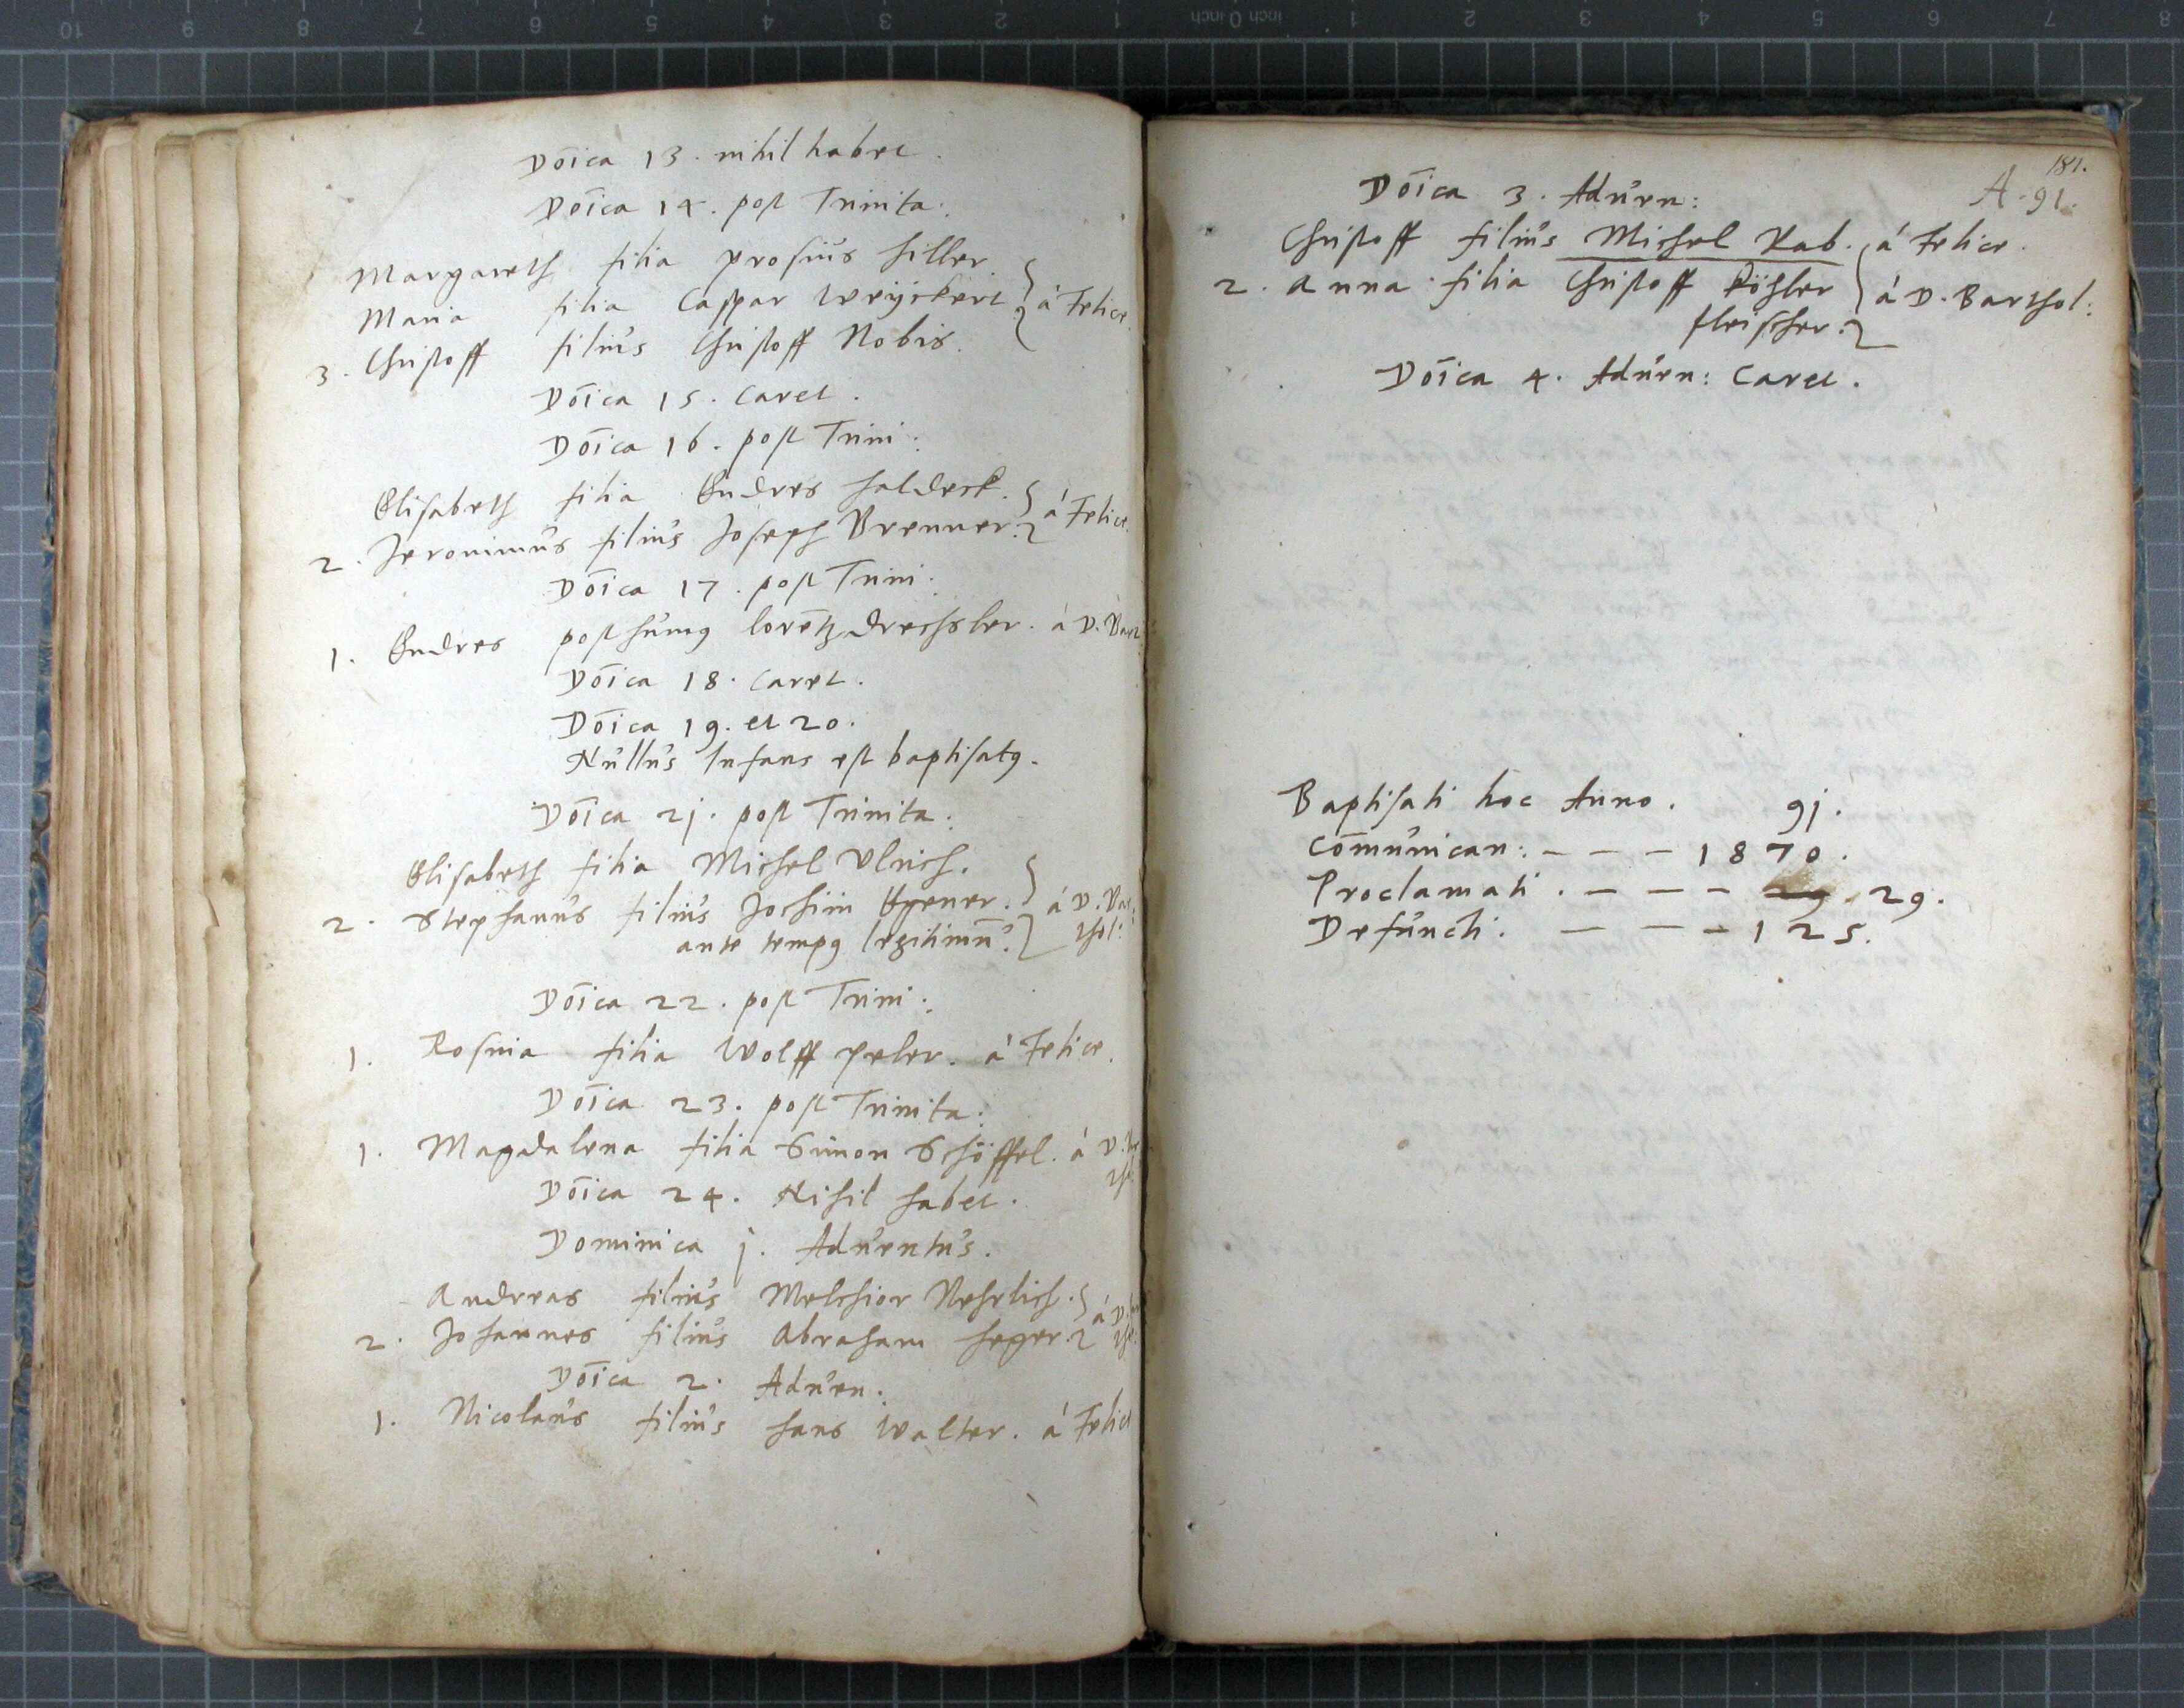 Dōica 13. nihil habet.
Dōica 14. post Trinita:
Margareth filia Prosius Hiller
Maria filia Caspar Weÿckert. à Felice.
3. Christoff filius Christoff Nobis.
Dōica 15. Caret.
Dōica 16. post Trini:
Elisabeth filia Endres Haldeck. à Felice.
2. Jeronimus filius Joseph Brenner.
Dōica 17. post Trini:
1. Endres posthumq Lorētz Drechsler. à D. Bart
Dōica 18. Caret.
Dōica 19. et 20.
Nullus Infans est baptisatq.
Dōica 2j. post Trinita:
Elisabeth filia Michel Ulrich.
2. Stephanus filius Jochim à D. Bar
ante tempq legitimū. thol:
Dōica 22. post Trini:
1. Rosina filia Wolff Peler. à Felice.
Dōica 23. post Trinita:
1. Magdalena filia Simon Schöffel. à D.
Dōica 24. Nihil habet.
Dominica j. Aduentus.
Andreas filius Melchior Nehrlich. à D.
2. Johannes filius Abraham Heger.
Dōica 2. Aduen:
1. Nicolaus filius Hans Walter. à Felice
181.
A. 91.
Dōica 3. Aduen:
Christoff filius Michel Rab. à Felice.
2. Anna filia Christoff Köhler à D. Barthol:
fleischer.
Dōica 4. Aduen: Caret.
Baptisati hoc Anno. 9j.
Cōmunican: - - - 1870.
Proclamati. - - - 29 29.
Defuncti. - - - 125.